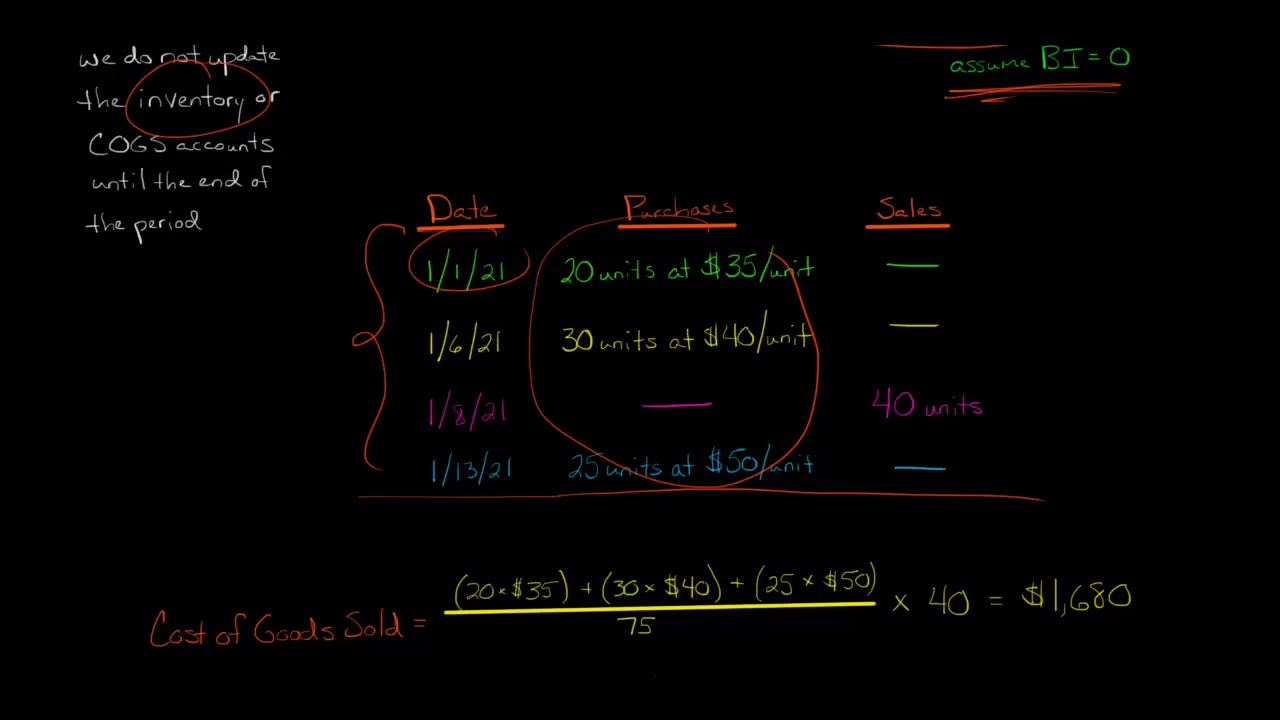 we do not update
the inventory or
COGS accounts
until the end of
the period
assume BI = 0
Date Purchases Sales
1/1/21 20 units at $35/unit —
1/6/21 30 units at $40/unit —
1/8/21 — 40 units
1/13/21 25 units at $50/unit —
(20 × $35) + (30 × $40) + (25 × $50)
Cost of Goods Sold = × 40 = $1,680
75